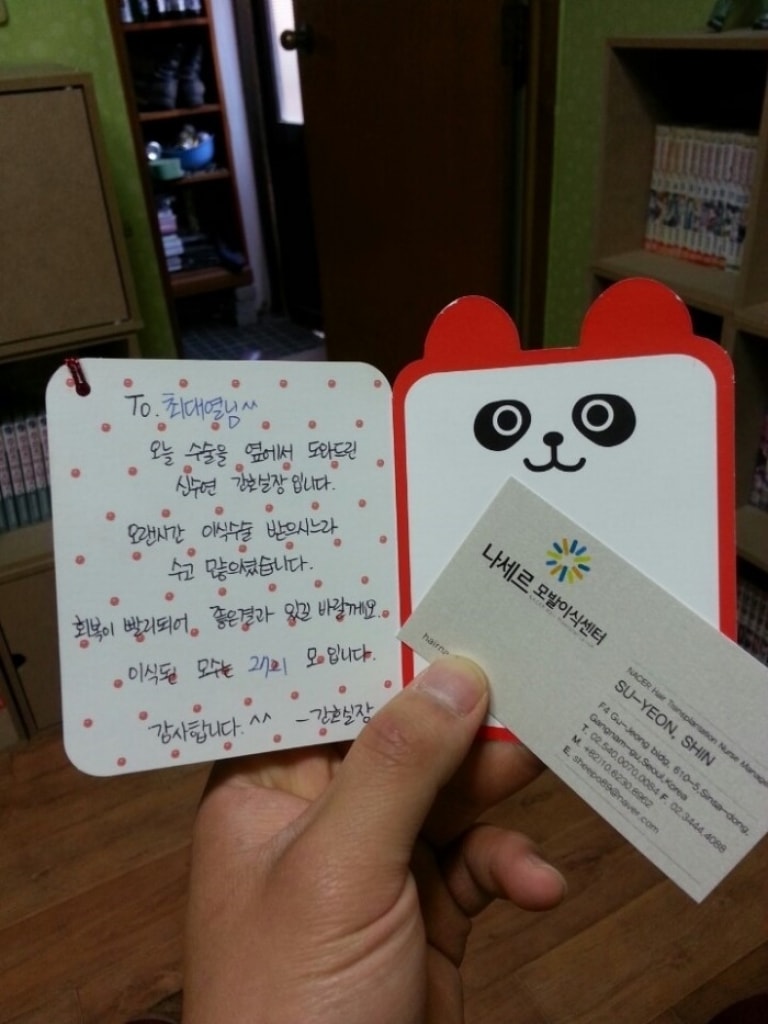 To. 최대열님^^
오늘 수술을 옆에서 도와드린
신수연 간호실장 입니다.
오랜시간 이식수술 받으시느라
수고 많으셨습니다.
회복이 빨리되어 좋은결과 있길 바랄께요.
이식된 모수는 2721 모 입니다.
감사합니다. ^^ -간호실장
나세르 모발이식센터
NACER Hair Transplantation Nurse Manager
SU-YEON, SHIN
F4 Gu-Jeong bldg, 610-5, Sinsa-dong,
Gangnam-gu, Seoul, Korea
T. 02.540.0070.0084 F. 02.3444.4088
M. +82)10.6230.6962
E. sheepo89@naver.com